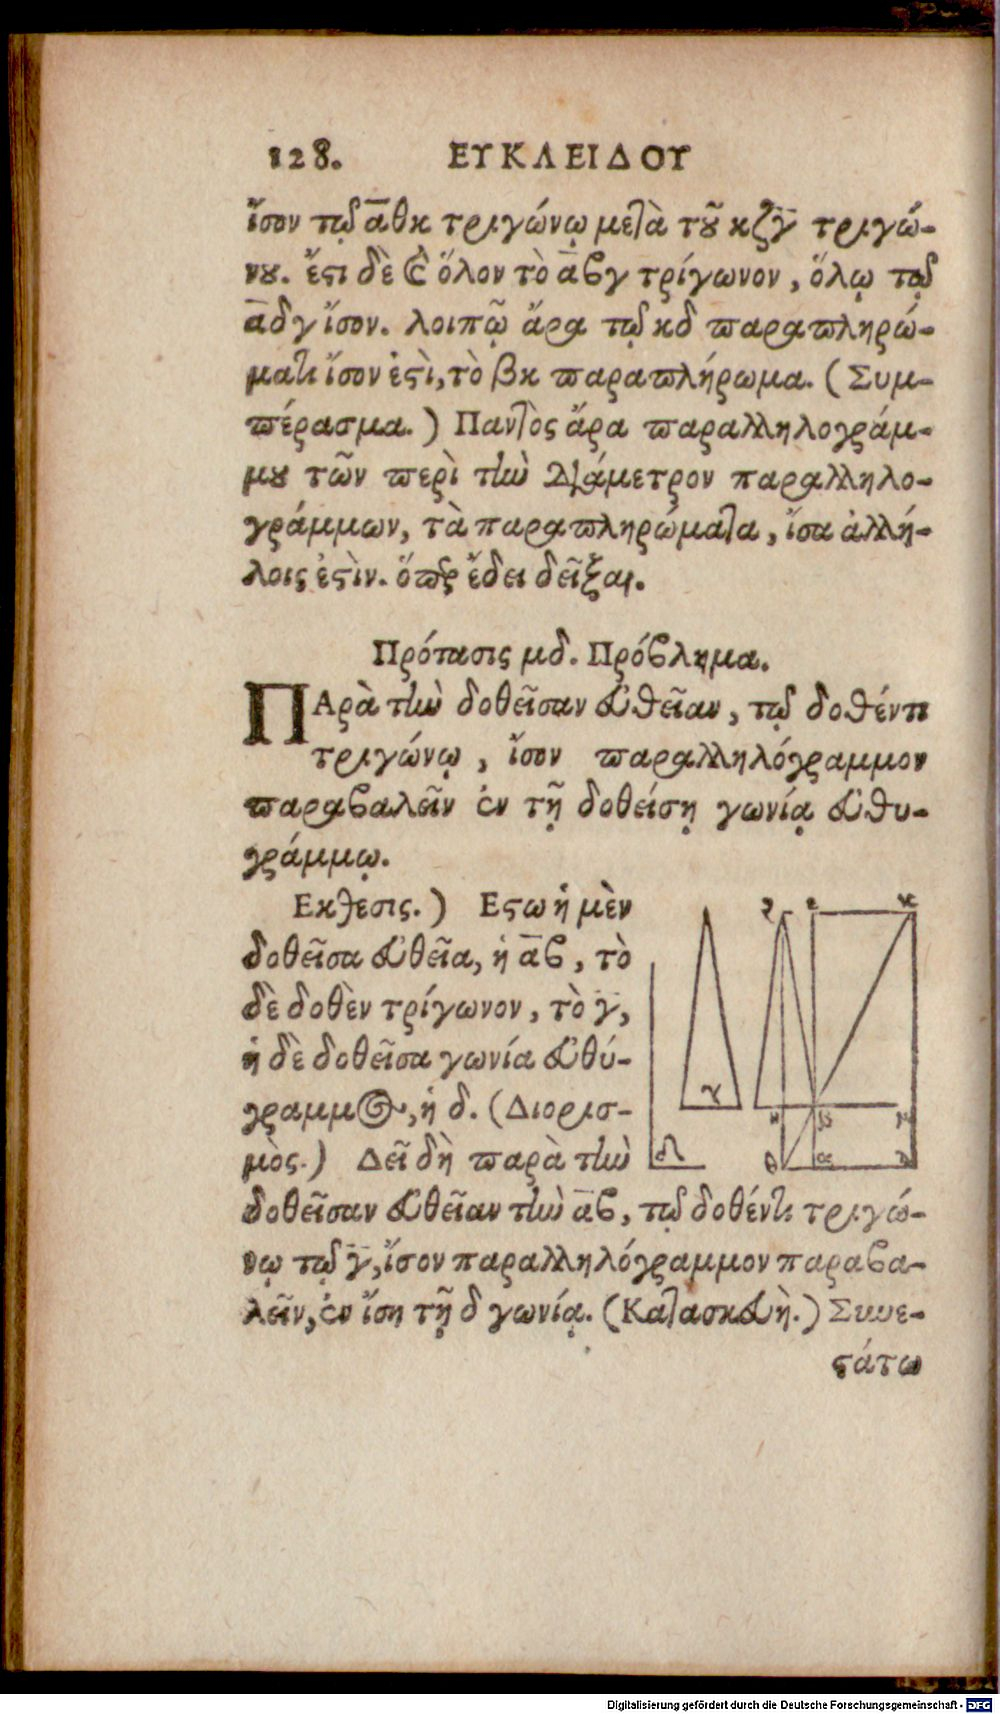 128. ΕΥΚΛΕΙΔΟΥ
ἴσον τῷ α̅θκ τριγώνῳ μετὰ τοῦ κζγ̅ τριγώ-
νου. ἔστι δὲ καὶ ὅλον τὸ α̅βγ τρίγωνον, ὅλῳ τῷ
α̅δγ ἴσον. λοιπῷ ἄρα τῷ κδ παραπληρώ-
ματι ἴσον ἐστὶ, τὸ βκ παραπλήρωμα. (Συμ-
πέρασμα.) Παντὸς ἄρα παραλληλογράμ-
μου τῶν περὶ τὴν διάμετρον παραλληλο-
γράμμων, τὰ παραπληρώματα, ἴσα ἀλλή-
λοις ἐστὶν. ὅπερ ἔδει δεῖξαι.
Πρότασις μδ. Πρόβλημα.
ΠΑρὰ τὴν δοθεῖσαν εὐθεῖαν, τῷ δοθέντι
τριγώνῳ, ἴσον παραλληλόγραμμον
παραβαλεῖν ἐν τῇ δοθείσῃ γωνίᾳ εὐθυ-
γράμμῳ.
Εκθεσις.) Εστω ἡ μὲν
δοθεῖσα εὐθεῖα, ἡ α̅β, τὸ
δὲ δοθὲν τρίγωνον, τὸ γ̅,
ἡ δὲ δοθεῖσα γωνία εὐθύ-
γραμμος, ἡ δ. (Διορισ-
μὸς.) Δεῖ δὴ παρὰ τὴν
δοθεῖσαν εὐθεῖαν τὴν α̅β, τῷ δοθέντι τριγώ-
νῳ τῷ γ̅, ἴσον παραλληλόγραμμον παραβα-
λεῖν, ἐν ἴσῃ τῇ δ γωνίᾳ. (Κατασκευὴ.) Συνε-
στάτω
ζ ε κ
γ
η β μ
δ θ α λ
Digitalisierung gefördert durch die Deutsche Forschungsgemeinschaft - DFG